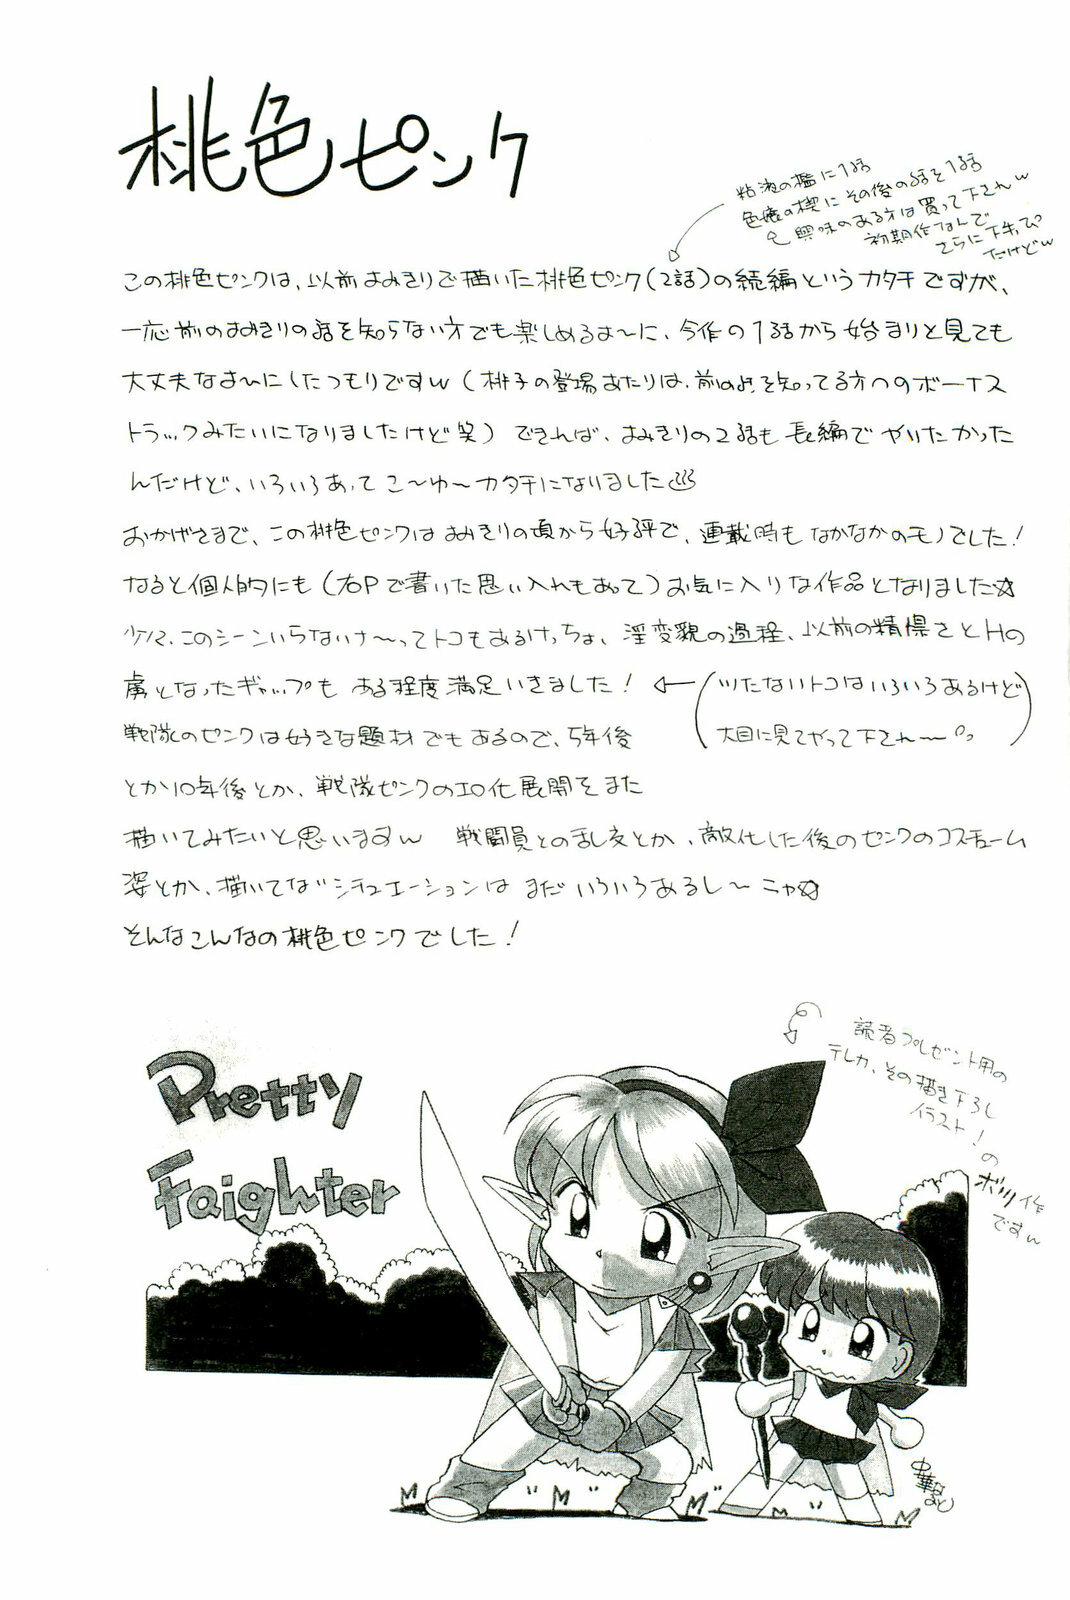 桃色ピンク
粘液の檻に1話
色癒の楔にその後の話を1話
興味のある方は買って下されw
初期作なんで
さらに下手っぴ
だけどw
この桃色ピンクは、以前よみきりで描いた桃色ピンク(2話)の続編というカタチですが、
一応前のよみきりの話を知らない方でも楽しめるよ〜に、今作の1話から始まりと見ても
大丈夫なよ〜にしたつもりですw(桃子の登場あたりは、前の話を知ってる方へのボーナス
トラックみたいになりましたけど笑) できれば、よみきりの2話も長編でやりたかった
んだけど、いろいろあってこ〜ゆ〜カタチになりました♨
おかげさまで、この桃色ピンクはよみきりの頃から好評で、連載時もなかなかのモノでした!
なると個人的にも(右Pで書いた思い入れもあって)お気に入りな作品となりました☆
少々、このシーンいらないナ〜ってトコもあるけっちょ、淫変貌の過程、以前の精悍さとHの
虜となったギャップも ある程度満足いきました! ←
(ツたないトコはいろいろあるけど
大目に見てやって下され〜)
戦隊のピンクは好きな題材でもあるので、5年後
とか10年後とか、戦隊ピンクのエロ化展開をまた
描いてみたいと思いますw 戦闘員との乱交とか、敵化した後のピンクのコスチューム
姿とか、描いてないシチュエーションは まだいろいろあるし〜ニャ☆
そんなこんなの桃色ピンクでした!
読者プレゼント用の
テレカ、その描き下ろし
イラスト!
の
ボツ作
ですw
Pretty
Faighter
中華なると